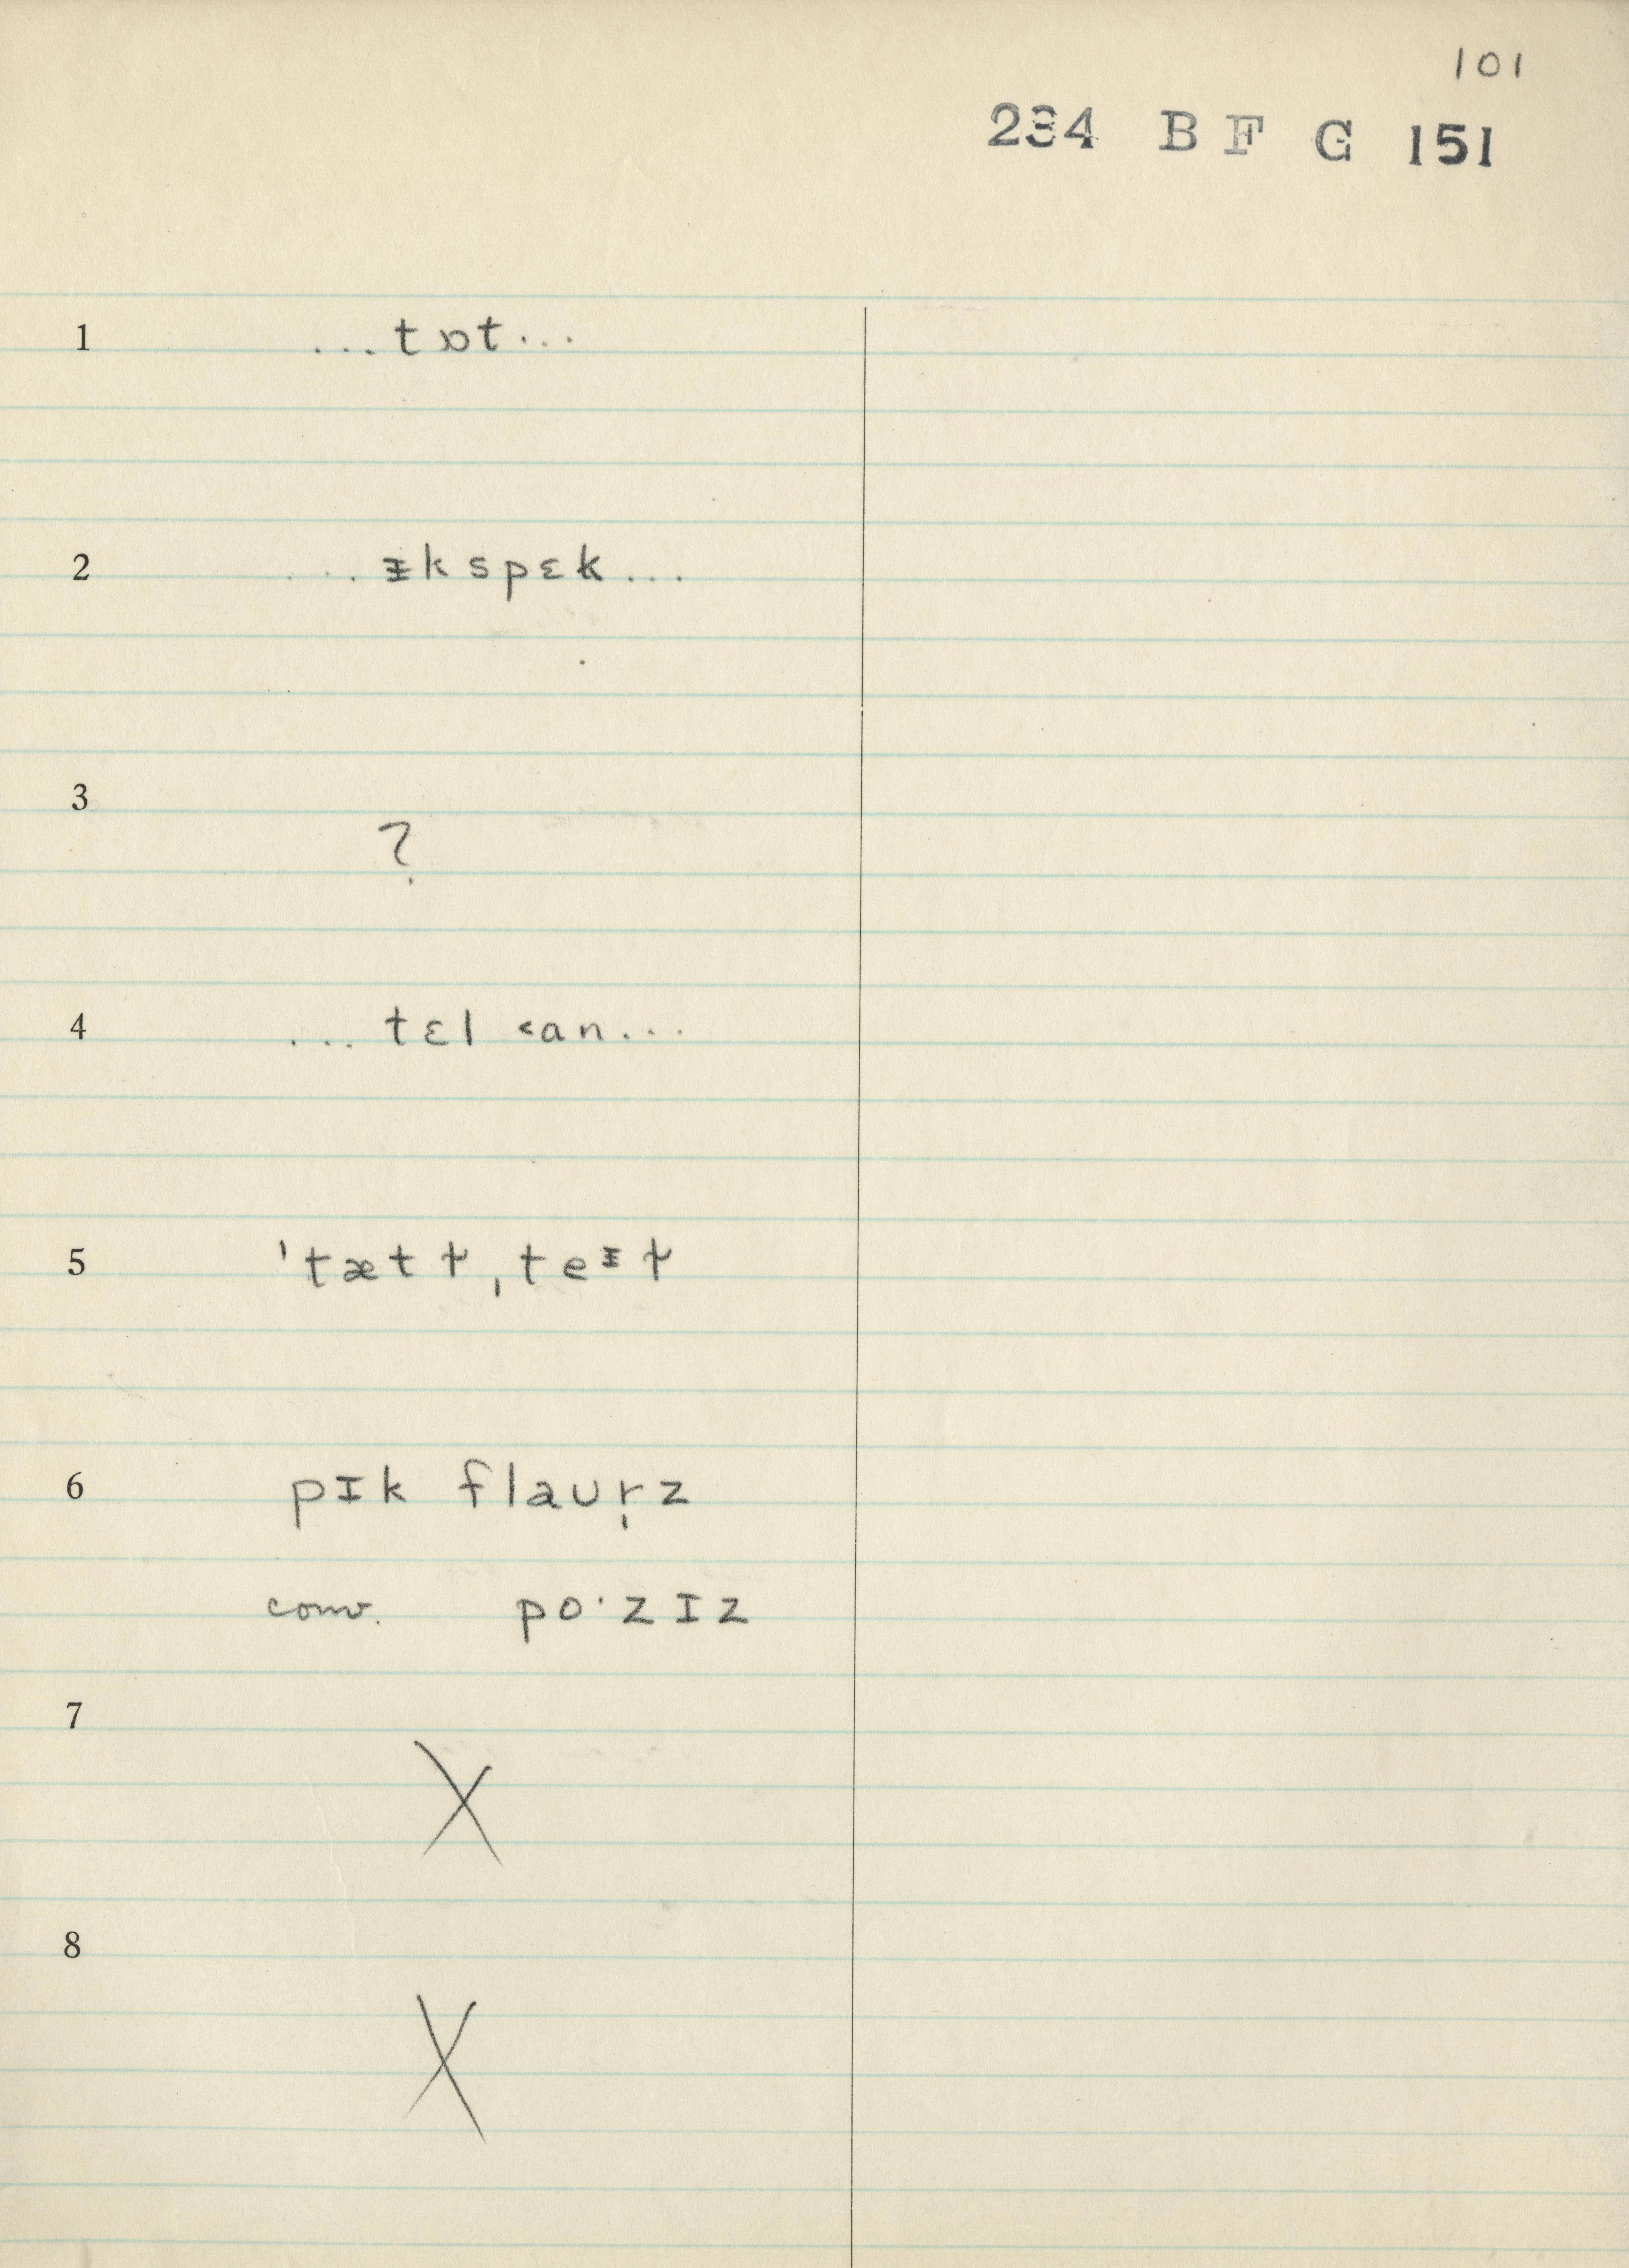 101
234 B F G 151
1 ...tɒt...
2 ... ᵻkspɛk...
3 ?
4 ... tɛl ˂an...
5
6 pɪk flaʊr̩z
conv. po·zɪz
7 X
8 X